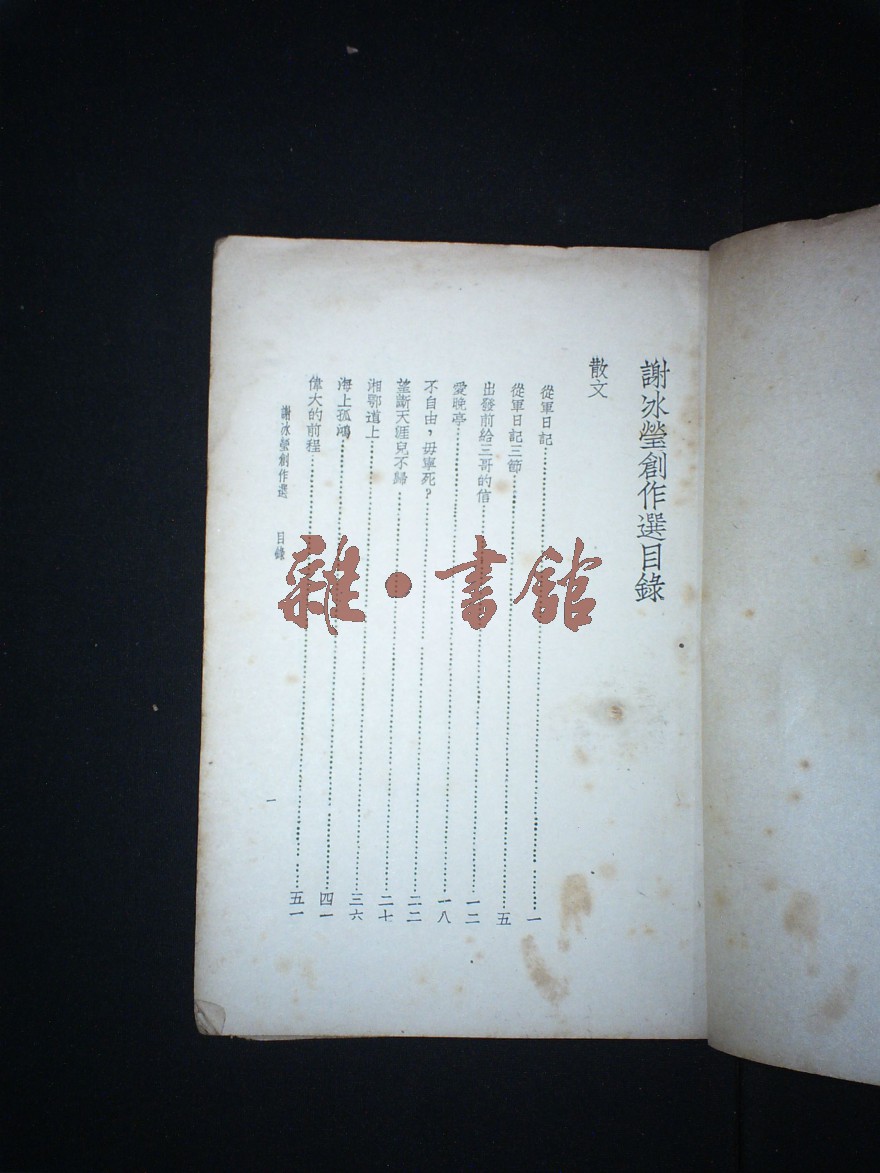 謝冰瑩創作選目錄
散文
從軍日記……一
從軍日記三節……五
出發前給三哥的信……一二
愛晚亭……一八
不自由，毋寧死？……二二
望斷天涯兒不歸……二七
湘鄂道上……三六
海上孤鴻……四一
偉大的前程……五一
謝冰瑩創作選 目錄
一
雜·書館